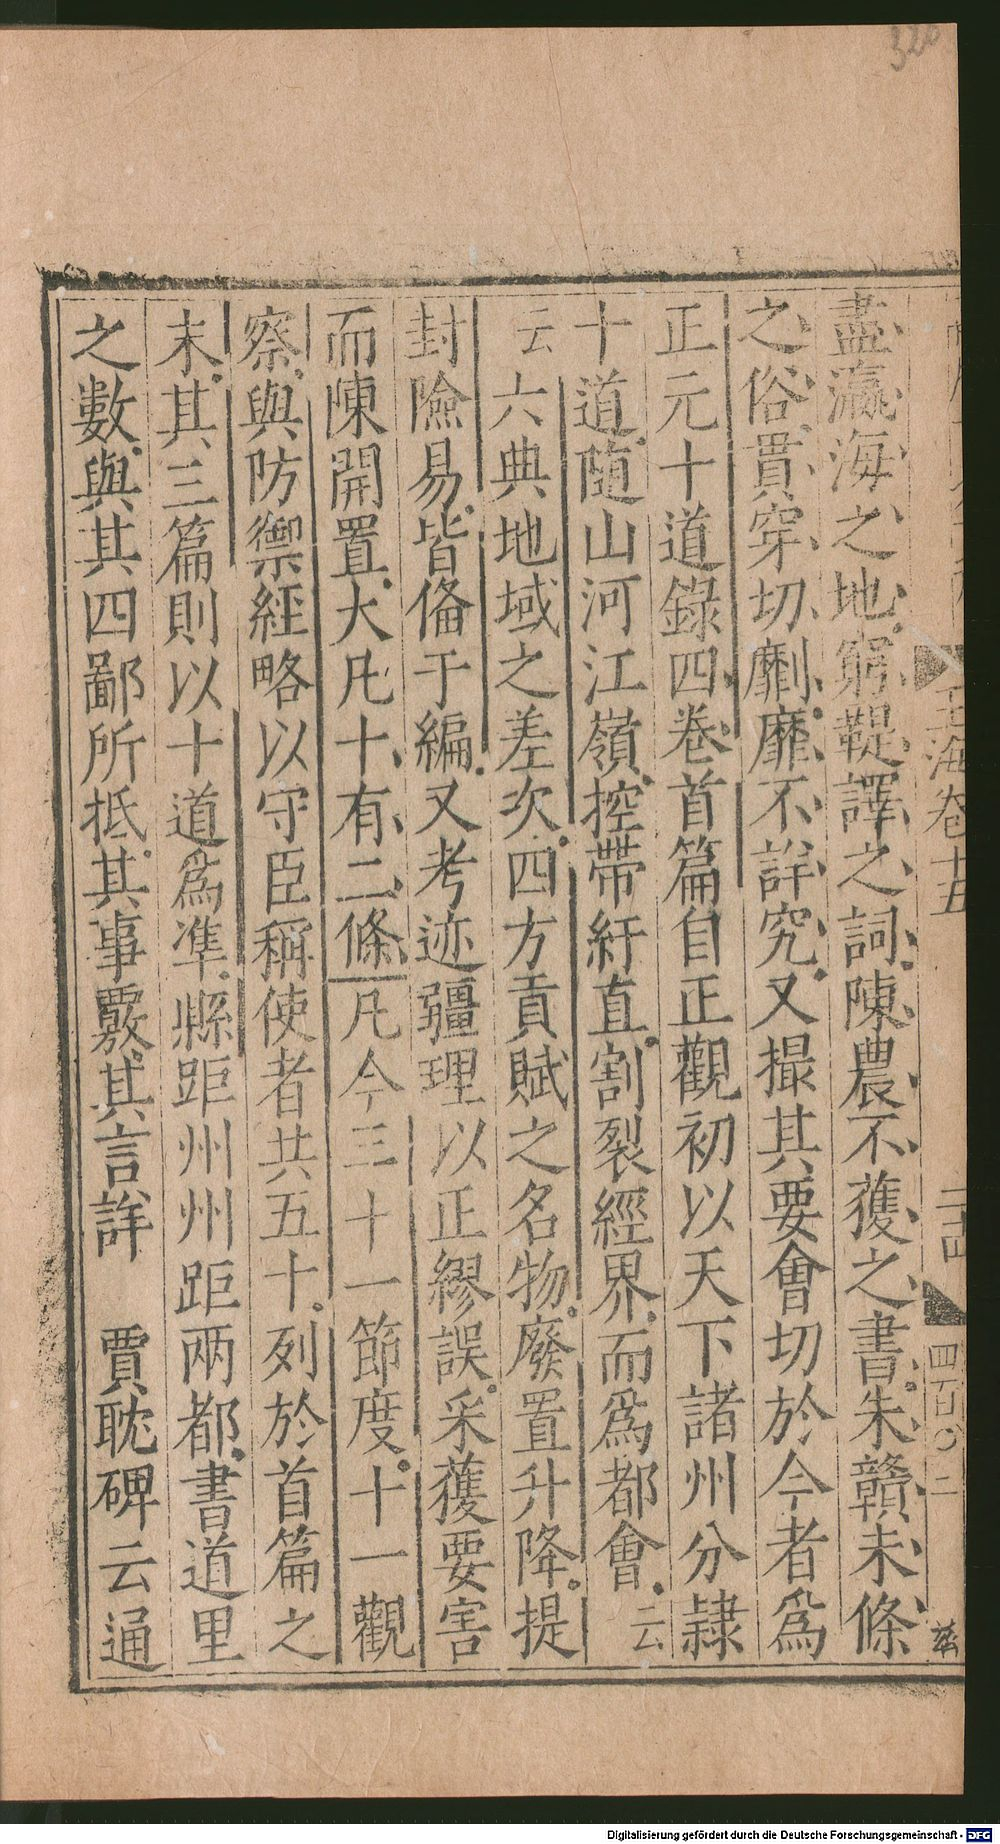 320
玉海卷十五
盡瀛海之地窮鞮譯之詞陳農不獲之書朱贛未條
之俗貫穿切劘靡不詳究又撮其要會切於今者爲
正元十道錄四卷首篇自正觀初以天下諸州分隸
十道隨山河江嶺控帶紆直割裂經界而爲都會云
云六典地域之差次四方貢賦之名物廢置升降提
封險易皆俻于編又考迹疆理以正繆誤采獲要害
而陳開置大凡十有二條凡今三十一節度十一觀
察與防禦經略以守臣稱使者共五十列於首篇之
末其三篇則以十道爲準縣距州州距兩都書道里
之數與其四鄙所抵其事覈其言詳　賈耽碑云通
Digitalisierung gefördert durch die Deutsche Forschungsgemeinschaft - DFG